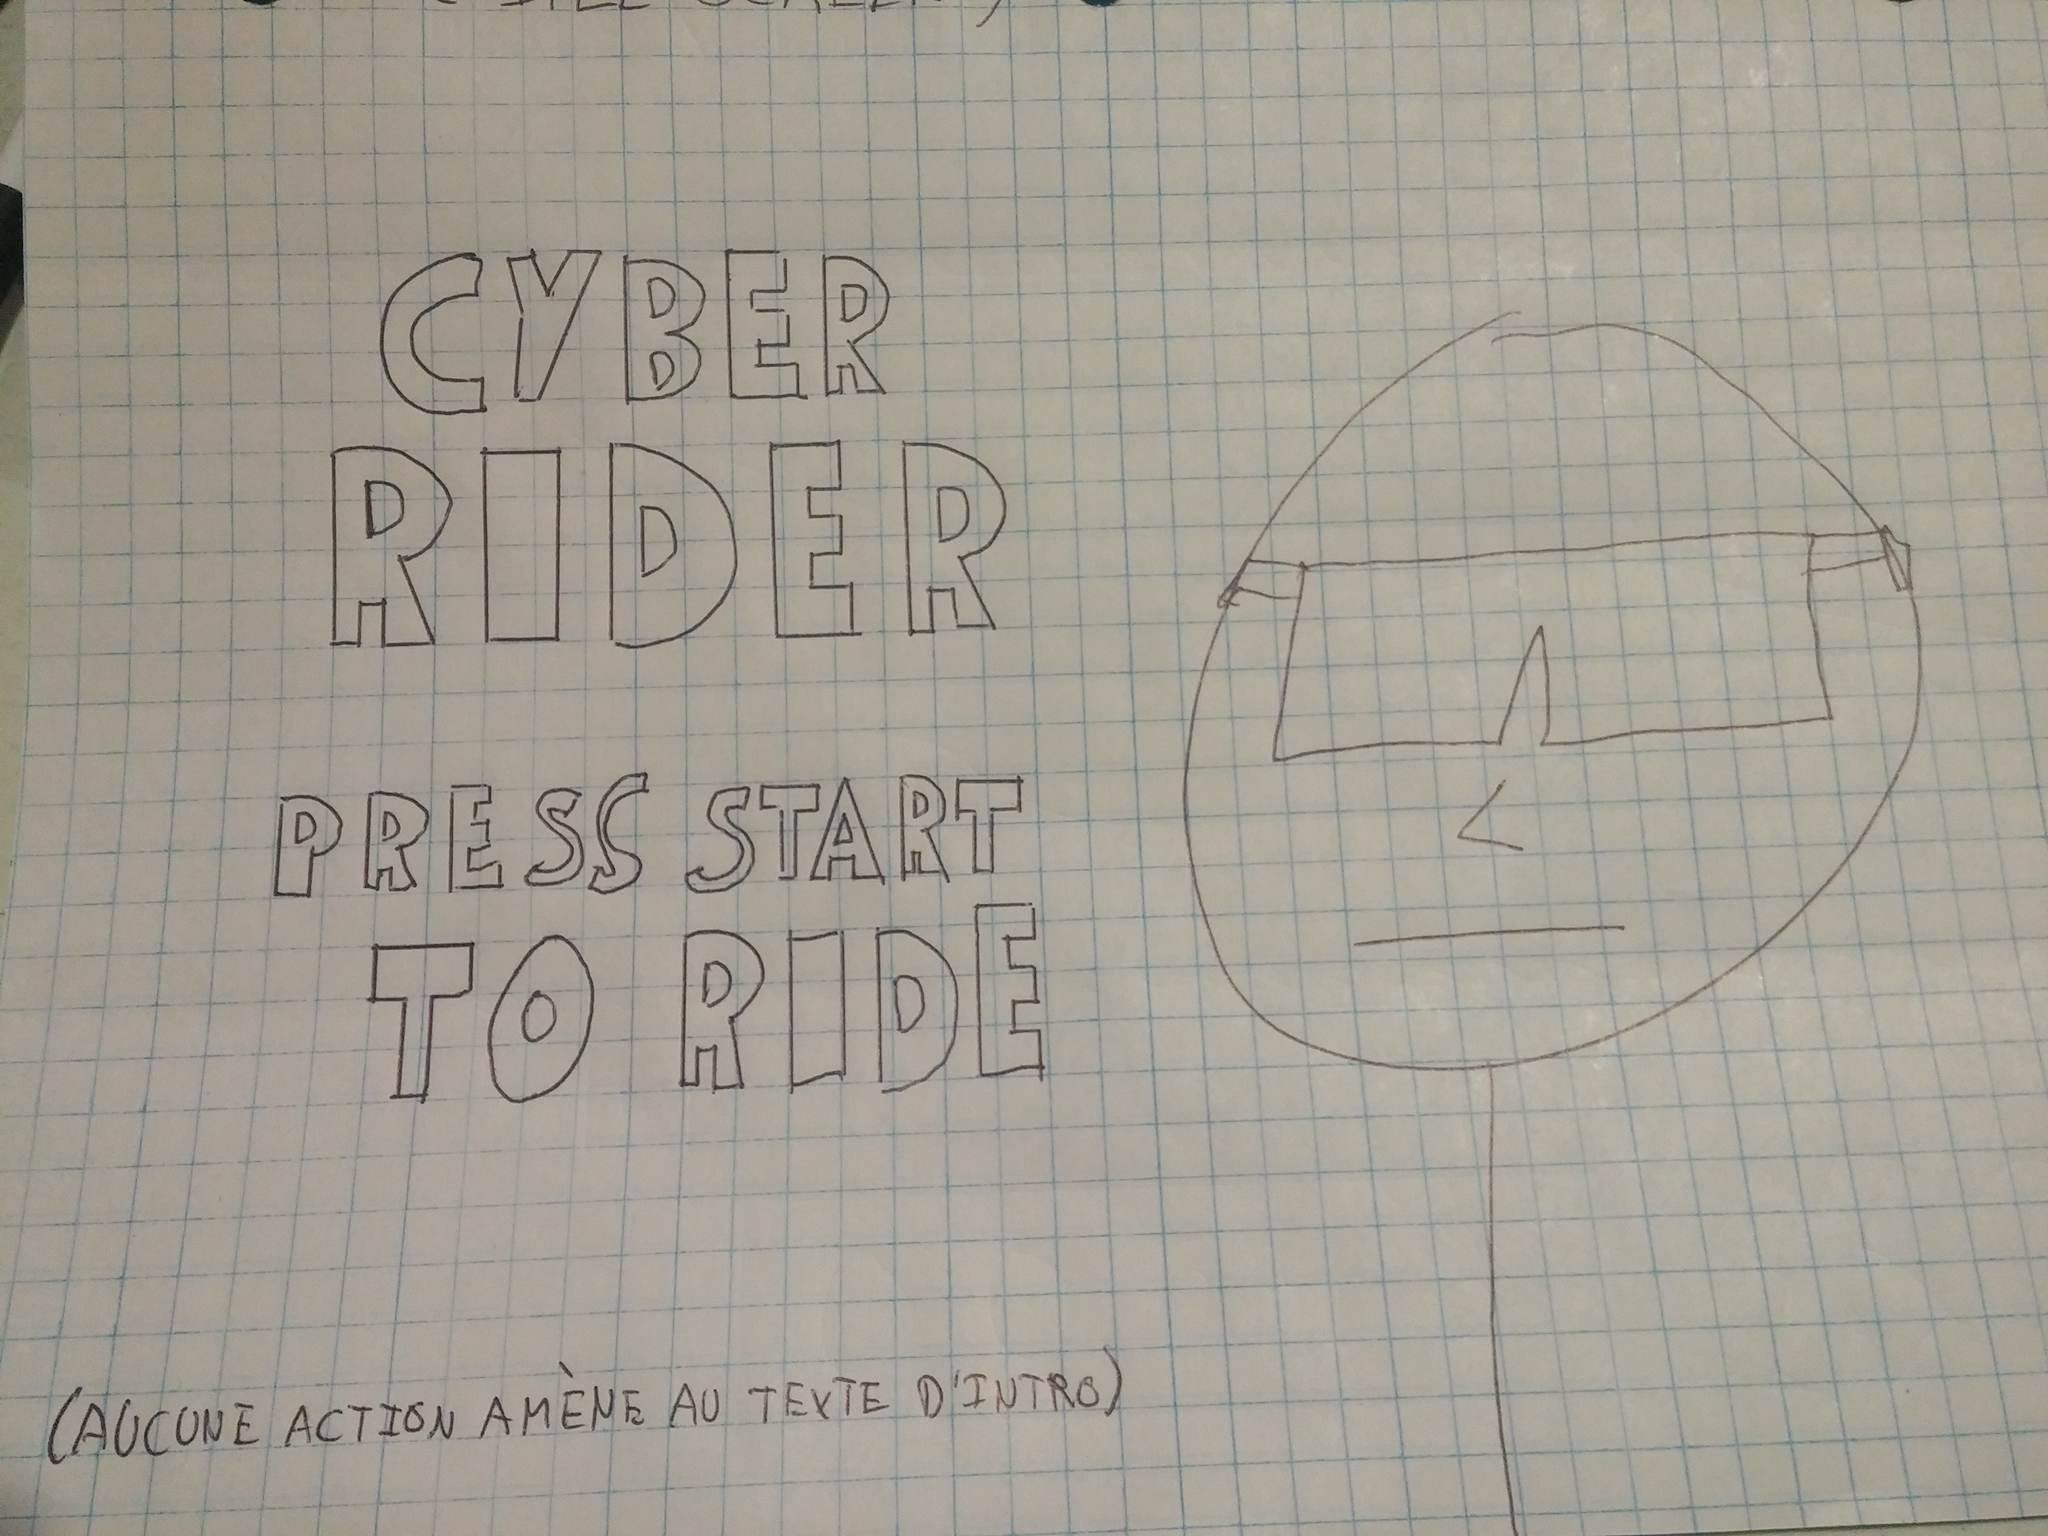 SCREEN)
CYBER
RIDER
PRESS START
TO RIDE
(AUCUNE ACTION AMÈNE AU TEXTE D'INTRO)